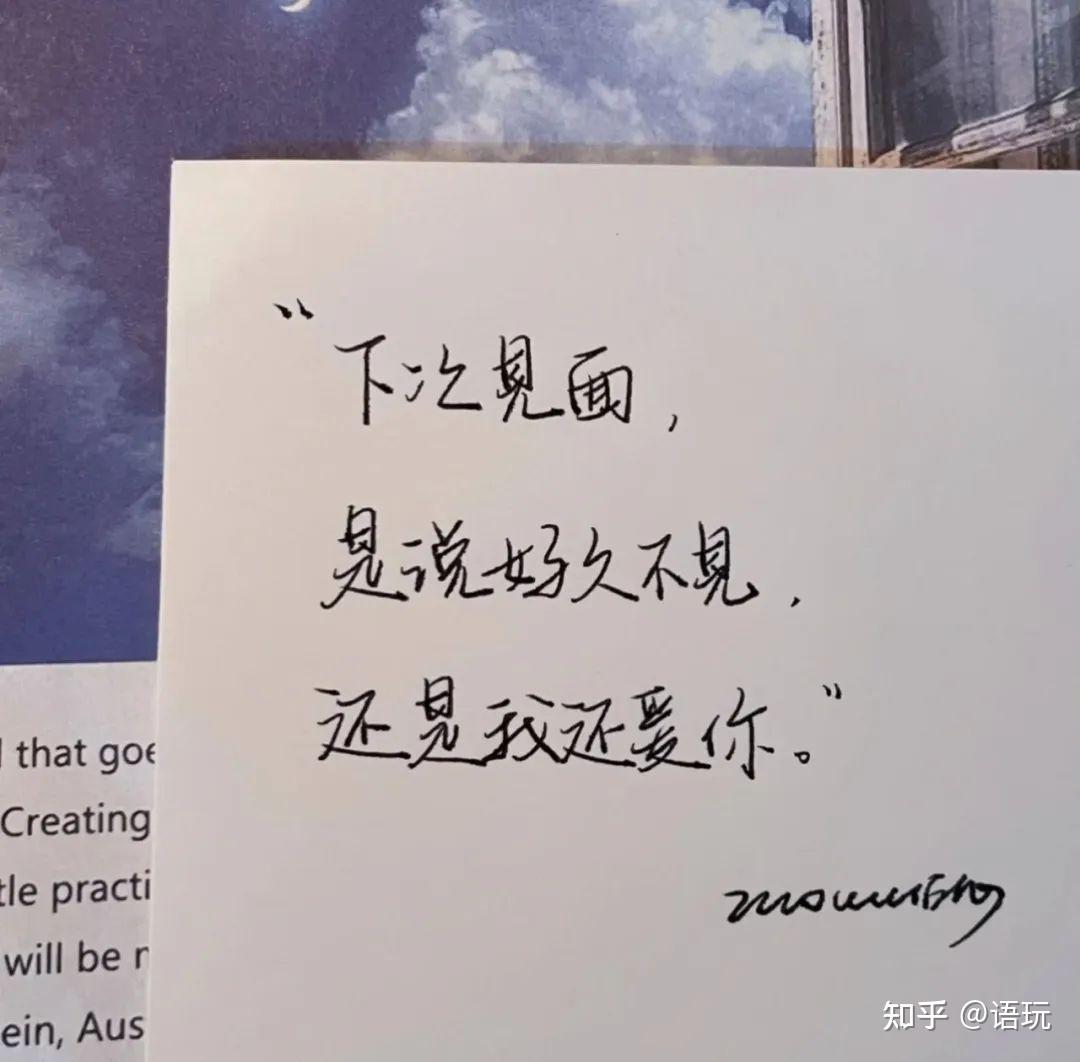 “下次見面，
是说好久不見，
还是我还爱你。”
that goe
Creating
tle practi
will be
ein, Aus
知乎 @语玩